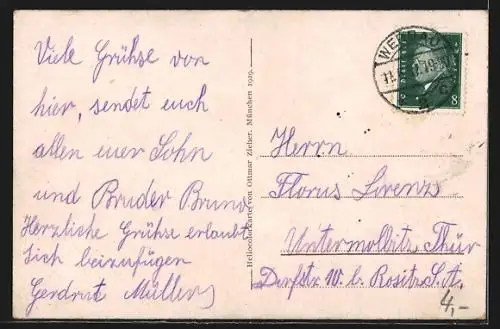 Viele Grühse von
hier, sendet euch
allen euer Sohn
und Bruder Bruno
Herzliche Grühse erlaubt
sich beizufügen
Gerdrut Müller
Heliocolorkarte von Ottmar Zieher, München 1929.
8
Herrn
Florus Lorenz
Untermolbitz Thür
Dorfstr 10 b. Rositz S.A.
4,-